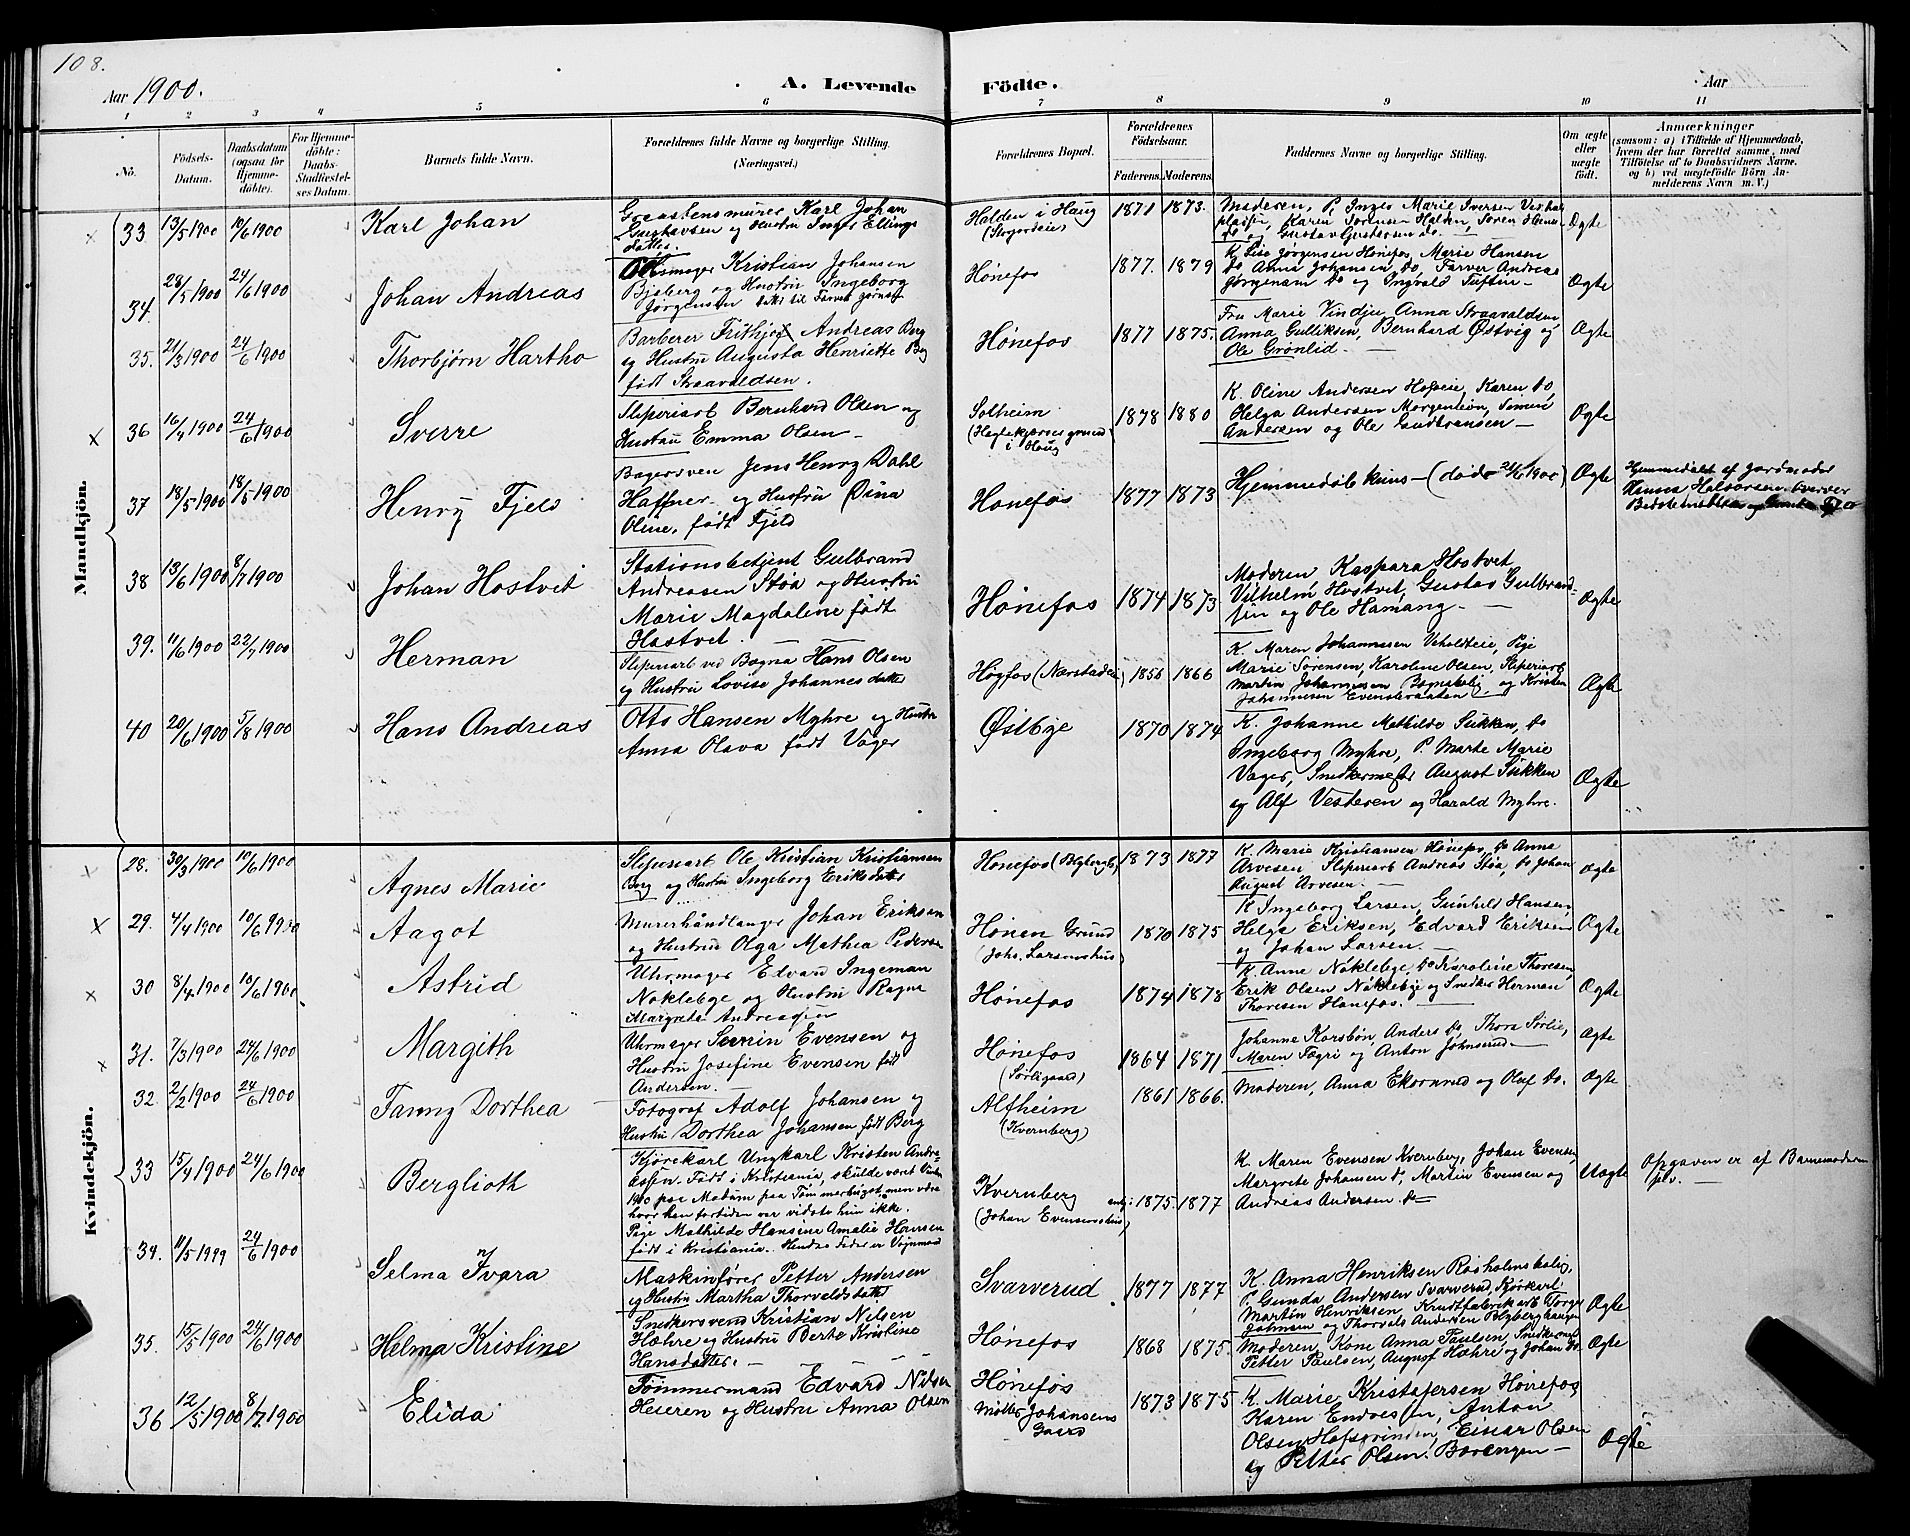 108.
Aar 1900.
A. Levende Födte.
Aar
1 2 3 4 5 6 7 8 9 10 11
No.
Födsels-Datum.
Daabsdatum (ogsaa for Hjemmedöbte).
For Hjemmedöbte: Daabs-Stadfæstelses Datum.
Barnets fulde Navn.
Forældrenes fulde Navne og borgerlige Stilling.
(Næringsvei.)
Forældrenes Bopæl.
Forældrenes Födselsaar.
Faderens. Moderens.
Faddernes Navne og borgerlige Stilling.
Om ægte eller uægte födt.
Anmærkninger
(saasom: a) i Tilfælde af Hjemmedaab, hvem der har forrettet samme, med Tilföielse af to Daabsvidners Navne. og b) ved uægtefödte Börn Anmelderens Navn m. V.)
Mandkjön.
33 13/5 1900 10/6 1900 Karl Johan
Karl Johan
og Hustru Inger Ellings
datter.
Halden i Haug
1871 1873.
Moderen, P. Inger Marie Iversen
Karen Sørensen Halden, Søren
do og Gustav Gustavsen do.
Ægte
34. 28/5 1900 24/6 1900 Johan Andreas
Kristian Johansen
Bjeberg og Hustru Ingeborg
Jørgensen
Hønefos
1877. 1879
K. Lise Jørgensen Hønefos, Marie Hansen
do Anna Johansen, do, Farver Andreas
Jørgensen do og Ingvald Tuftin
Ægte
35. 21/3 1900 24/6 1900 Thorbjørn Hartho
Barberer Frithjof Andreas Berg
og Hustru Augusta Henriette Berg
født Straavaldsen.
Hønefos
1877 1875.
Fru Marie Vindju, Anna Straavaldsen
Anna Gulliksen, Bernhard Østvig og
Ole Grønlid.
Ægte
36 16/4 1900 24/6 1900 Sverre
Sliperiarb Bernhard Olsen og
Hustru Emma Olsen
Solheim
i Haug
1878 1880
K. Oline Andersen Hofseie, Karen do
Helga Andersen
Andersen og Ole Gudbransen
Ægte
37 18/5 1900 18/5 1900 Henry Fjeld
Bagersven Jens Henry Dahl
Haffner og Hustru Dina
Oline, født Fjeld
Hønefos
1877 1873
Hjemmedøbt
(død 21/6 1900)
Ægte
Hjemmedøbt af Jordmoder
Hanna Halvorsen
38 13/6 1900 8/7 1900 Johan Hostvet
Stationsbetjent Gulbrand
Andreasen Støa og Hustru
Marie Magdalene født
Hostvet.
Hønefos
1874 1873
Moderen Kaspara Hostvet
Vilhelm Hostvet, Gustav Gulbrand-
sen og Ole Hamang.
Ægte
39. 11/6 1900 22/7 1900 Herman
Sliperiarb ved Bægna Hans Olsen
og Hustru Lovise Johannesdatter
Høgfos (Nærstadeie)
1856 1866
K. Maren Johannesen Veholdteie, Pige
Marie Sørensen, Karoline Olsen, Sliperiarb
Martin Johannesen og Kristen
Johannesen
Ægte
40 20/6 1900 5/8 1900 Hans Andreas
Otto Hansen Myhre og Hustru
Anna Olava født Vager
Østbye
1870 1874
K. Johanne Mathilde Sukken, do
Ingeborg Myhre, P. Marte Marie
Vager, Snedkermester August Sukken
og Alf Vesteren og Harald Myhre.
Ægte
Kvindekjön.
28. 30/3 1900 10/6 1900 Agnes Marie
Sliperiarb Ole Kristian Kristiansen
Berg og Hustru Ingeborg Eriksdatter
Hønefos
1873 1877
K. Marie Kristiansen Hønefos, do Anna
Arvesen Sliperiarb Andreas Støa, do Johan
August Arvesen.
Ægte
29. 4/4 1900 10/6 1900 Aagot
Murerhåndlanger Johan Eriksen
og Hustru Olga Mathea Pedersen
Hønen Grund
(Johs. Larsens hus)
1870 1875
K Ingeborg Larsen, Gunhild Hansen,
Helga Eriksen, Edvard Eriksen
og Johan Larsen.
Ægte
30 8/4 1900 10/6 1900 Astrid
Uhrmager Edvard Ingeman
Nøklebye og Hustru Ragna
Margrete Andreasen
Hønefos
1874 1878
K. Anne Nöklebye, do Karoline Thoresen
Erik Olsen Nöklebye og Snedker Herman
Thoresen Hønefos.
Ægte
31. 7/3 1900 24/6 1900 Margith
Uhrmager Severin Evensen og
Hustru Josefine Evensen født
Andersen.
Hønefos
(Sørligaard)
1864 1871
Johanne Korsbøn, Anders do, Thora Sørlie,
Maren Fagri og Anton Johnsrud
Ægte
32. 2/2 1900 24/6 1900 Fanny Dorthea
Fotograf Adolf Johansen og
Hustru Dorthea Johansen født Berg
Alfheim
(Kvernberg)
1861 1866.
Moderen, Anna Ekornrud og Oluf do.
Ægte
33 15/4 1900 24/6 1900 Berglioth
Kjørekarl Ungkarl Kristen Andre-
assen. Født i Kristiania, skulde været Vinter
1900 paa Modum paa Tømmerhugst, men
hvor han fortiden var vidste hun ikke.
Pige Mathilde Hansine Amalie Hansen
født i Kristiania. Hendes Fader er Vognmand
Kvernberg
(Johan Evensens hus)
1875. 1877
K. Maren Evensen Kvernberg, Johan Evensen,
Margrete Johansen do, Martin Evensen og
Andreas Andersen do
Uægte
Opgaven er af Barnemoderen
selv.
34. 11/5 1999 24/6 1900 Selma Ivara
Maskinfører Petter Andersen
og Hustru Martha Thorvaldsdatter
Svarverud
1877 1877
K. Anna Henriksen Røsholmsbolig,
P. Gunda Andersen Svarverud, Kjørkarl
Martin Henriksen, Krudtfabrikarb Torger
Johnsen og Thorvald Andersen
Ægte
35. 15/5 1900 24/6 1900 Helma Kristine
Snedkersvend Kristian Nilsen
Hæhre og Hustru Berte Kristine
Hansdatter.
Hønefos
1868 1875.
Moderen, Kone Anna Paulsen, Snedkermst
Petter Paulsen, August Hæhre og Johan do.
Ægte
36 12/5 1900 8/7 1900 Elida
Tømmermand Edvard Nilsen
Heieren og Hustru Anna Olsen
Hønefos
Møller Johansens
Gaard
1873 1875
K. Marie Kristofersen Hønefos
Karen Endresen, Anton
Olsen Hofsgrinden, Einar Olsen
og Petter Olsen Børengen
Ægte